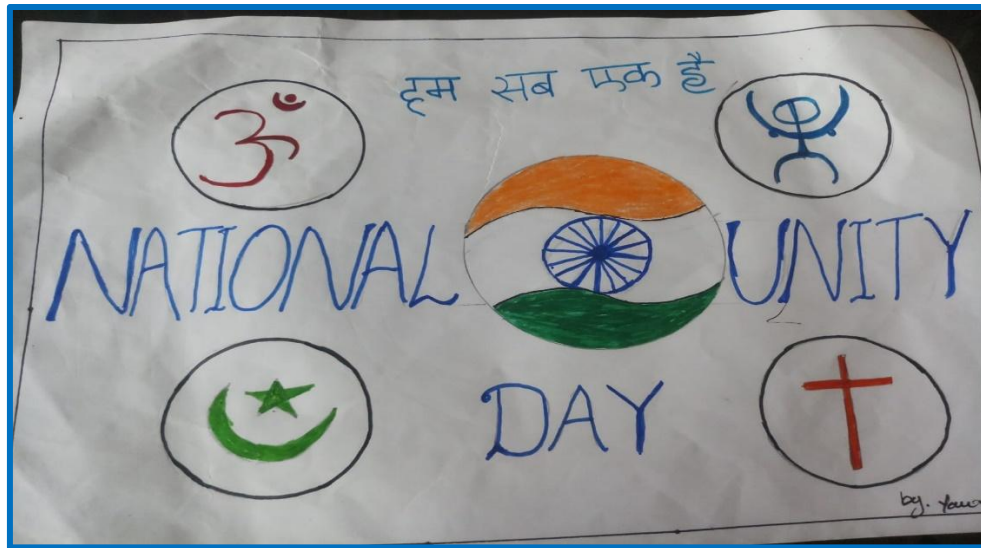 हम सब एक है
NATIONAL UNITY
DAY
by.